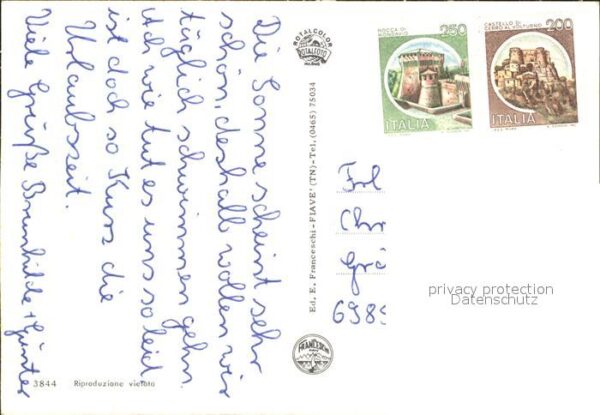 Die Sonne scheint sehr
schön, deshalb wollen wir
täglich schwimmen gehn.
Ach wie tut es uns so leid
ist doch so kurz die
Urlaubszeit.
Viele Grüße Brunhilde + Günter
ROTALCOLOR
ROTALFOTO
MILANO
Ed. E. Franceschi - FIAVE' (TN) - Tel. (0465) 75034
3844 Riproduzione vietata
ROCCA DI
250
ITALIA
CASTELLO DI
CERRO AL VOLTURNO
200
ITALIA
Frl
Chr
Grö
698
privacy protection
Datenschutz